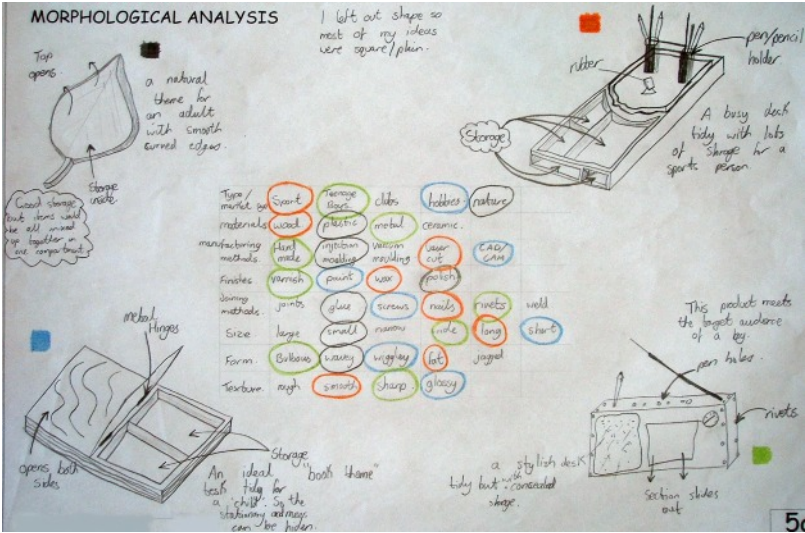 MORPHOLOGICAL ANALYSIS
I left out shape so
most of my ideas
were square/plain.
Top
opens.
a natural
theme for
an adult
with smooth
curved edges.
Storage
inside
Good storage
but items would
be all mixed
up together in
one compartment
pen/pencil
holder.
rubber
Storage
A busy desk
tidy with lots
of storage for a
sports person.
Type/
market
Sport
Teenage
Boys
clubs
hobbies
nature
materials
wood
plastic
metal
ceramic.
manufacturing
methods.
Hand
made
injection
moulding
vacuum
moulding
laser
cut
CAD/
CAM
Finishes
varnish
paint
wax
polish
Joining
methods.
joints
glue
screws
nails
rivets
weld
Size
large
small
narrow
wide
long
short
Form.
Bulbous
wavey
wiggley
fat
jagged
Texture.
rough
smooth
sharp.
glossy
metal
Hinges
opens both
sides
Storage
An ideal "book theme"
desk tidy for
a 'child'. So the
stationary
can be hiden.
This product meets
the target audience
of a boy.
pen holes.
rivets.
a stylish desk
tidy but with concealed
storage.
Section slides
out
5